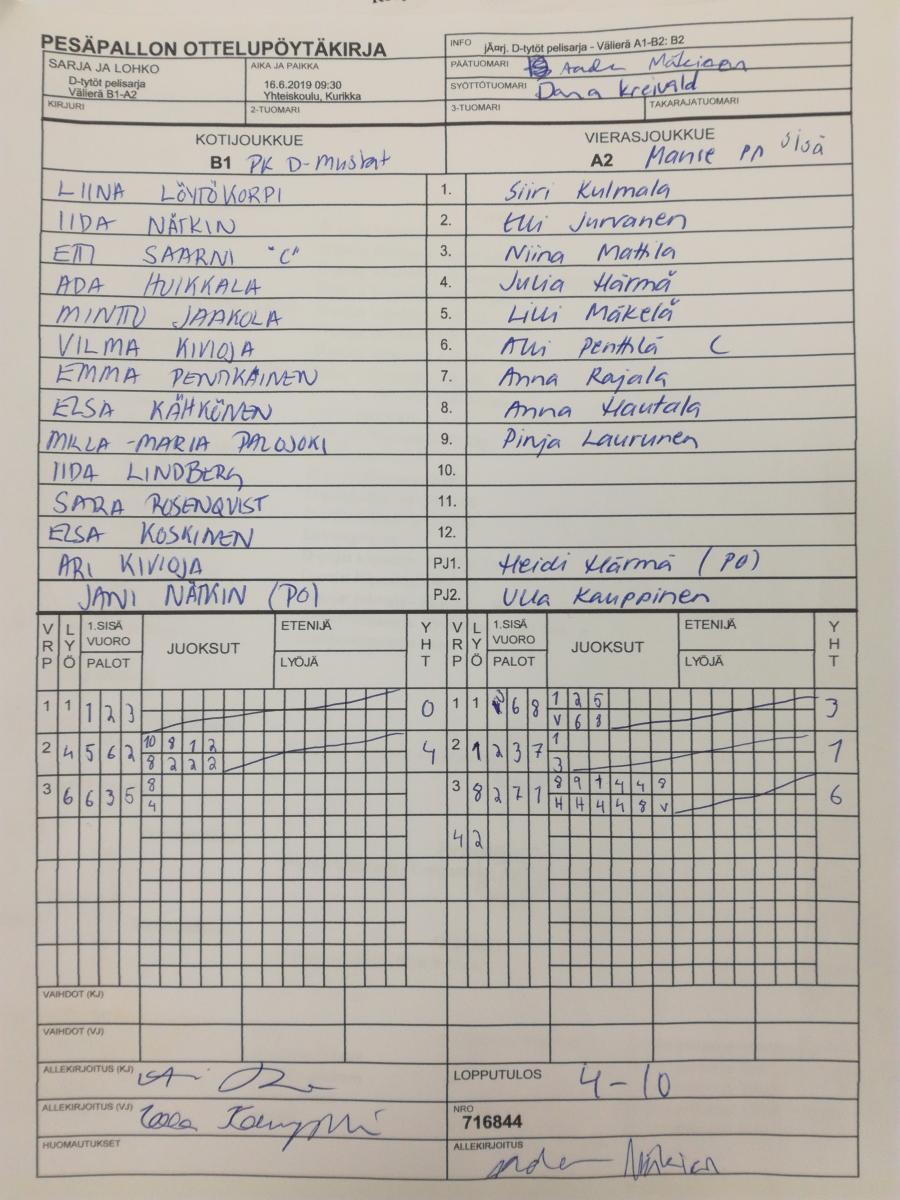 PESÄPALLON OTTELUPÖYTÄKIRJA
INFO jÄ¤rj. D-tytöt pelisarja - Välierä A1-B2: B2
SARJA JA LOHKO
D-tytöt pelisarja
Välierä B1-A2
AIKA JA PAIKKA
16.6.2019 09:30
Yhteiskoulu, Kurikka
PÄÄTUOMARI
SYÖTTÖTUOMARI Dana Kreivald
KIRJURI 2-TUOMARI 3-TUOMARI TAKARAJATUOMARI
KOTIJOUKKUE VIERASJOUKKUE
B1 PK D-Mustat A2 Manse PP sisä
LIINA LÖYTÖKORPI 1. Siiri Kulmala
IIDA NÄTKIN 2. Elli Jurvanen
ETTI SAARNI "C" 3. Niina Mattila
ADA HUIKKALA 4. Julia Härmä
MINTTU JAAKOLA 5. Lilli Mäkelä
VILMA KIVIOJA 6. Alli Penttilä C
EMMA PENTIKÄINEN 7. Anna Rajala
ELSA KÄHKÖNEN 8. Anna Hautala
MILLA-MARIA PALOJOKI 9. Pinja Laurunen
IIDA LINDBERG 10.
SARA ROSENQVIST 11.
ELSA KOSKINEN 12.
ARI KIVIOJA PJ1. Heidi Härmä (PO)
JANI NÄTKIN (PO) PJ2. Ulla Kauppinen
VRP LYÖ 1.SISÄ VUORO PALOT JUOKSUT ETENIJÄ LYÖJÄ YHT VRP LYÖ 1.SISÄ VUORO PALOT JUOKSUT ETENIJÄ LYÖJÄ YHT
1 1 1 2 3 0 1 1 6 8 1 2 5 3
V 6 8
2 4 5 6 2 10 8 1 2 4 2 1 2 3 7 1 1
8 2 2 2 3
3 6 6 3 5 8 3 8 2 7 1 8 9 1 4 4 8 6
4 H H 4 4 8 V
4 2
VAIHDOT (KJ)
VAIHDOT (VJ)
ALLEKIRJOITUS (KJ) LOPPUTULOS 4-10
ALLEKIRJOITUS (VJ) NRO
716844
HUOMAUTUKSET ALLEKIRJOITUS